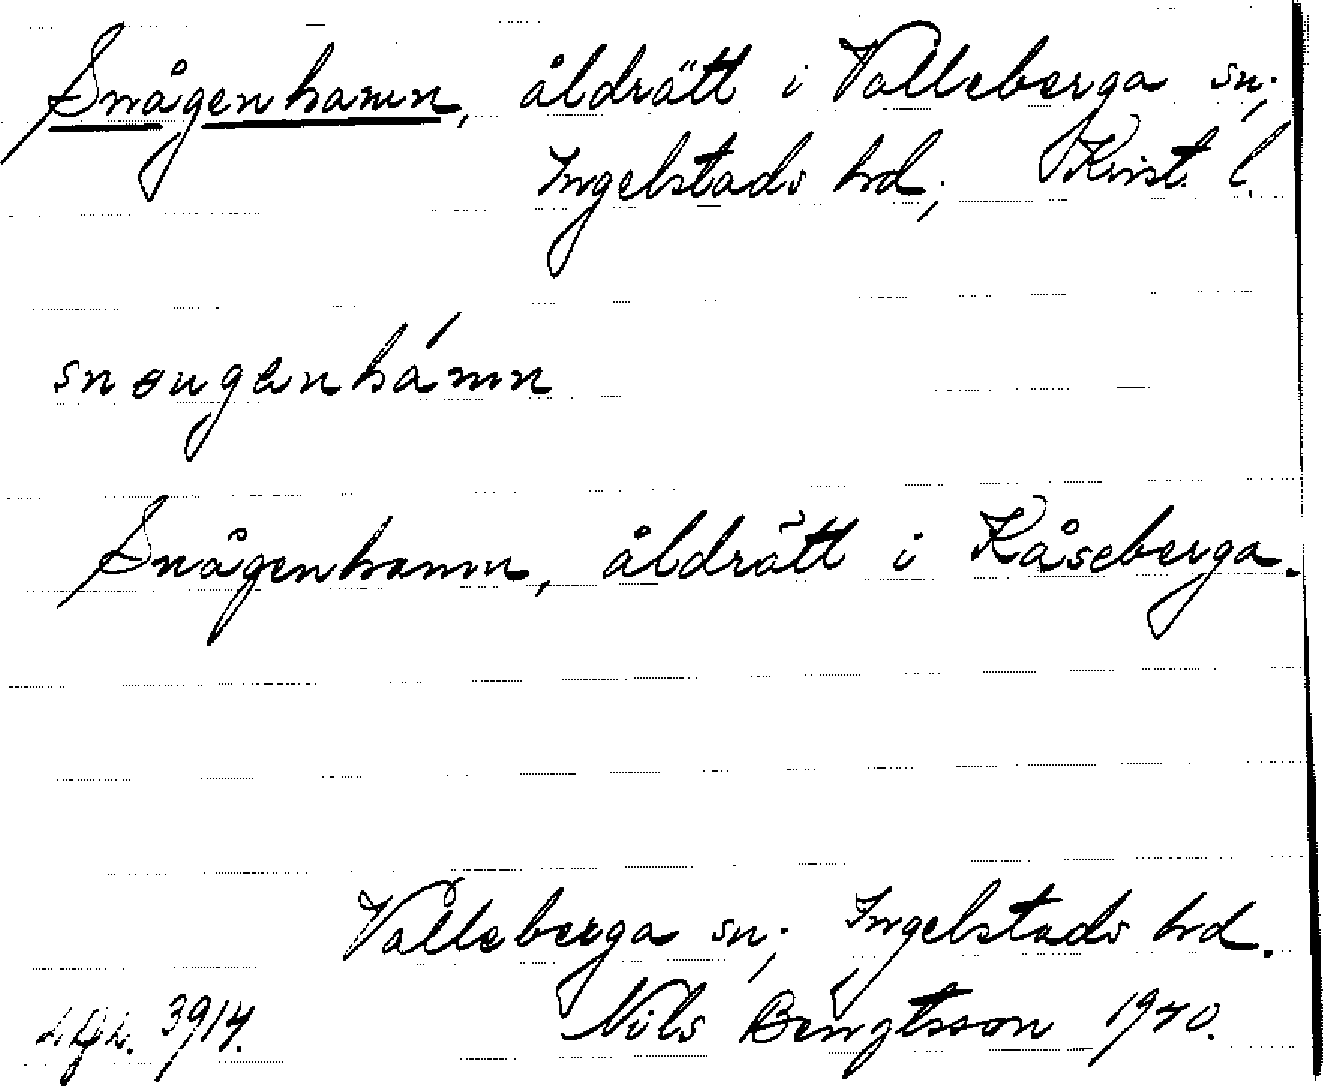 Snågenhamn, åldrätt i Valleberga sn;
Ingelstads hrd; Krist. l.
snougenhámn
Snågenhamn, åldrätt i Kåseberga.
Valleberga sn; Ingelstads hrd.
3914. Nils Bengtsson 1940.